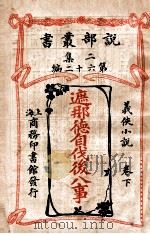 說部叢書
二集
第六十二編
義俠小說　卷下
遮那德自伐後八事
上海
商務印書館發行